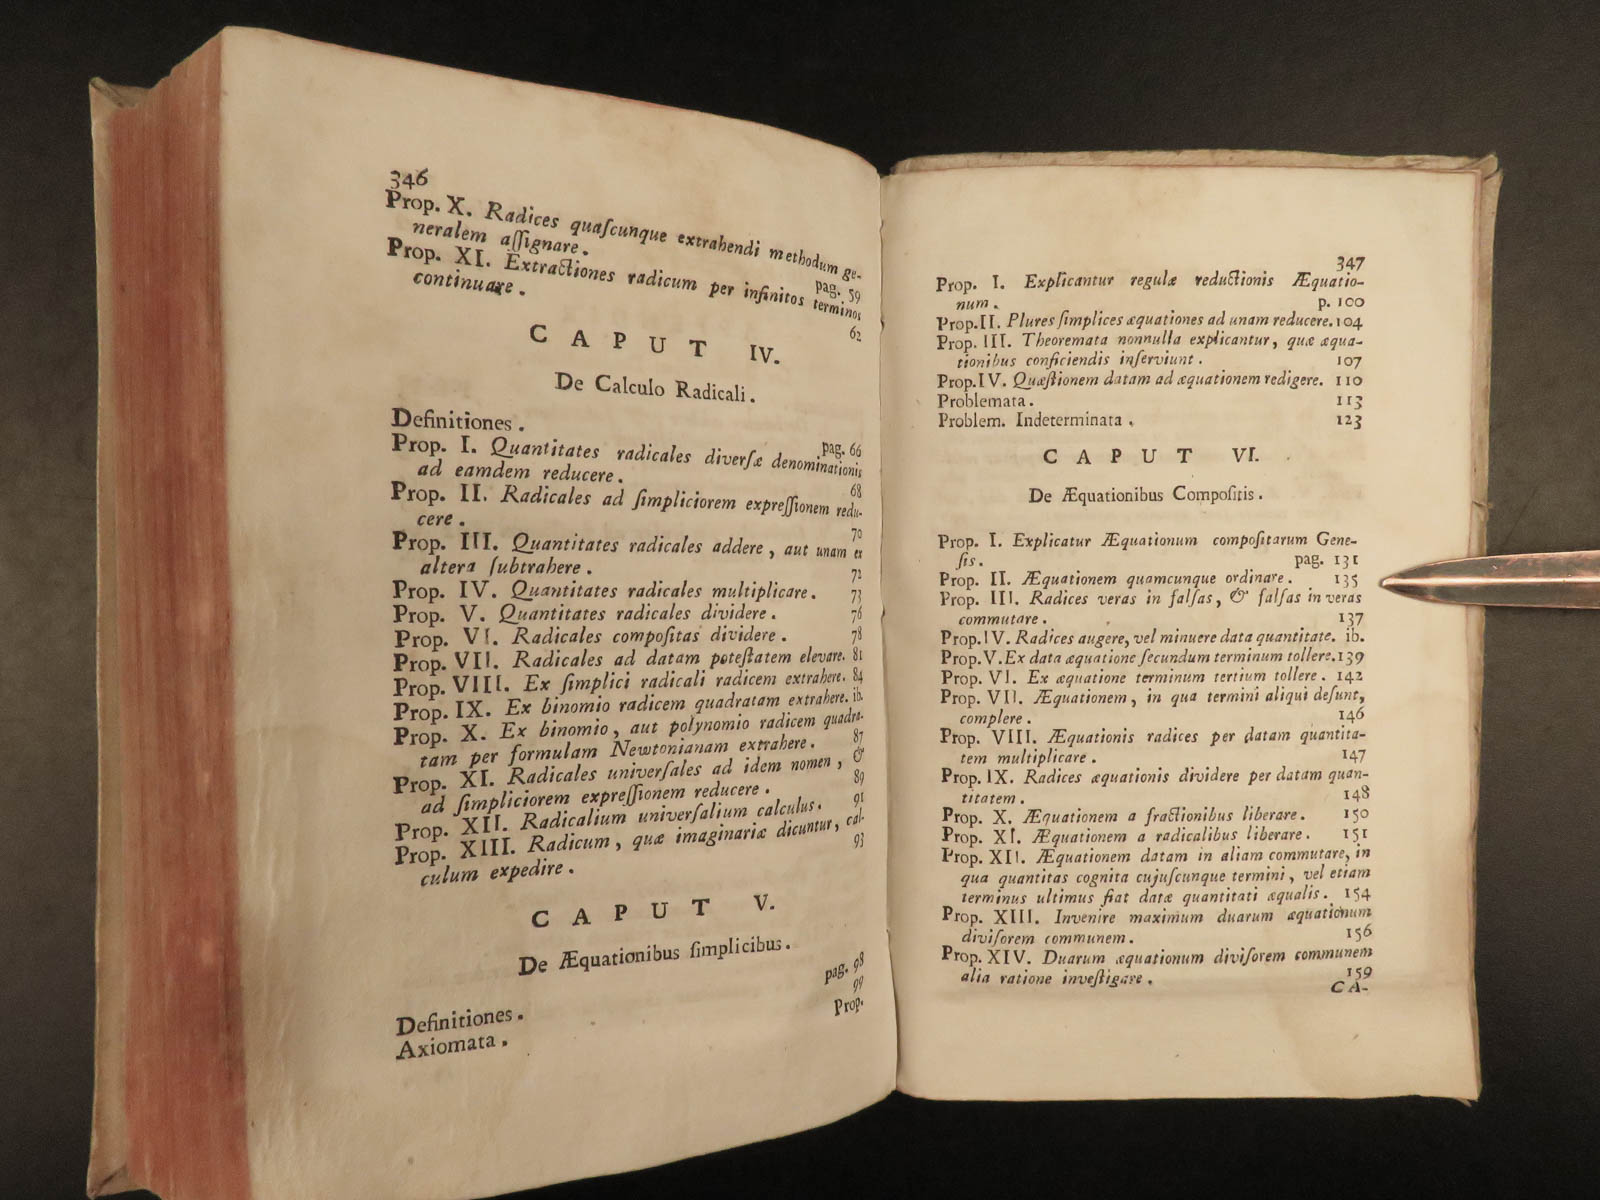 346
Prop. X. Radices quaſcunque extrahendi methodum ge-
neralem aſſignare. pag. 59
Prop. XI. Extractiones radicum per infinitos terminos
continuare. 62
CAPUT IV.
De Calculo Radicali.
Definitiones. pag. 66
Prop. I. Quantitates radicales diverſæ denominationis
ad eamdem reducere. 68
Prop. II. Radicales ad ſimpliciorem expreſſionem redu-
cere. 70
Prop. III. Quantitates radicales addere, aut unam ex
altera ſubtrahere. 72
Prop. IV. Quantitates radicales multiplicare. 73
Prop. V. Quantitates radicales dividere. 76
Prop. VI. Radicales compoſitas dividere. 78
Prop. VII. Radicales ad datam poteſtatem elevare. 81
Prop. VIII. Ex ſimplici radicali radicem extrahere. 84
Prop. IX. Ex binomio radicem quadratam extrahere. ib.
Prop. X. Ex binomio, aut polynomio radicem quadra-
tam per formulam Newtonianam extrahere. 87
Prop. XI. Radicales univerſales ad idem nomen, &
ad ſimpliciorem expreſſionem reducere. 89
Prop. XII. Radicalium univerſalium calculus. 91
Prop. XIII. Radicum, quæ imaginariæ dicuntur, cal-
culum expedire. 93
CAPUT V.
De Æquationibus ſimplicibus.
Definitiones. pag. 98
Axiomata. 99
Prop.
347
Prop. I. Explicantur regulæ reductionis Æquatio-
num. p. 100
Prop.II. Plures ſimplices æquationes ad unam reducere. 104
Prop. III. Theoremata nonnulla explicantur, quæ æqua-
tionibus conficiendis inſerviunt. 107
Prop.IV. Quæſtionem datam ad æquationem redigere. 110
Problemata. 113
Problem. Indeterminata. 123
CAPUT VI.
De Æquationibus Compoſitis.
Prop. I. Explicatur Æquationum compoſitarum Gene-
ſis. pag. 131
Prop. II. Æquationem quamcunque ordinare. 135
Prop. III. Radices veras in falſas, & falſas in veras
commutare. 137
Prop.IV. Radices augere, vel minuere data quantitate. ib.
Prop.V.Ex data æquatione ſecundum terminum tollere.139
Prop. VI. Ex æquatione terminum tertium tollere. 142
Prop. VII. Æquationem, in qua termini aliqui deſunt,
complere. 146
Prop. VIII. Æquationis radices per datam quantita-
tem multiplicare. 147
Prop. IX. Radices æquationis dividere per datam quan-
titatem. 148
Prop. X. Æquationem a fractionibus liberare. 150
Prop. XI. Æquationem a radicalibus liberare. 151
Prop. XII. Æquationem datam in aliam commutare, in
qua quantitas cognita cujuſcunque termini, vel etiam
terminus ultimus fiat datæ quantitati æqualis. 154
Prop. XIII. Invenire maximum duarum æquationum
diviſorem communem. 156
Prop. XIV. Duarum æquationum diviſorem communem
alia ratione inveſtigare. 159
CA-